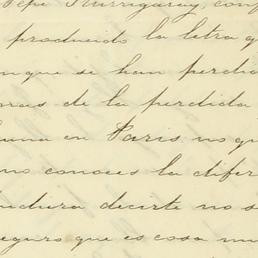 Pepe Iturrigaray, conf
producido la letra q
nque se han perdid
mas de la perdida
una en Paris no qu
no conoces la difer
udiera decirte no s
seguro que es cosa mu